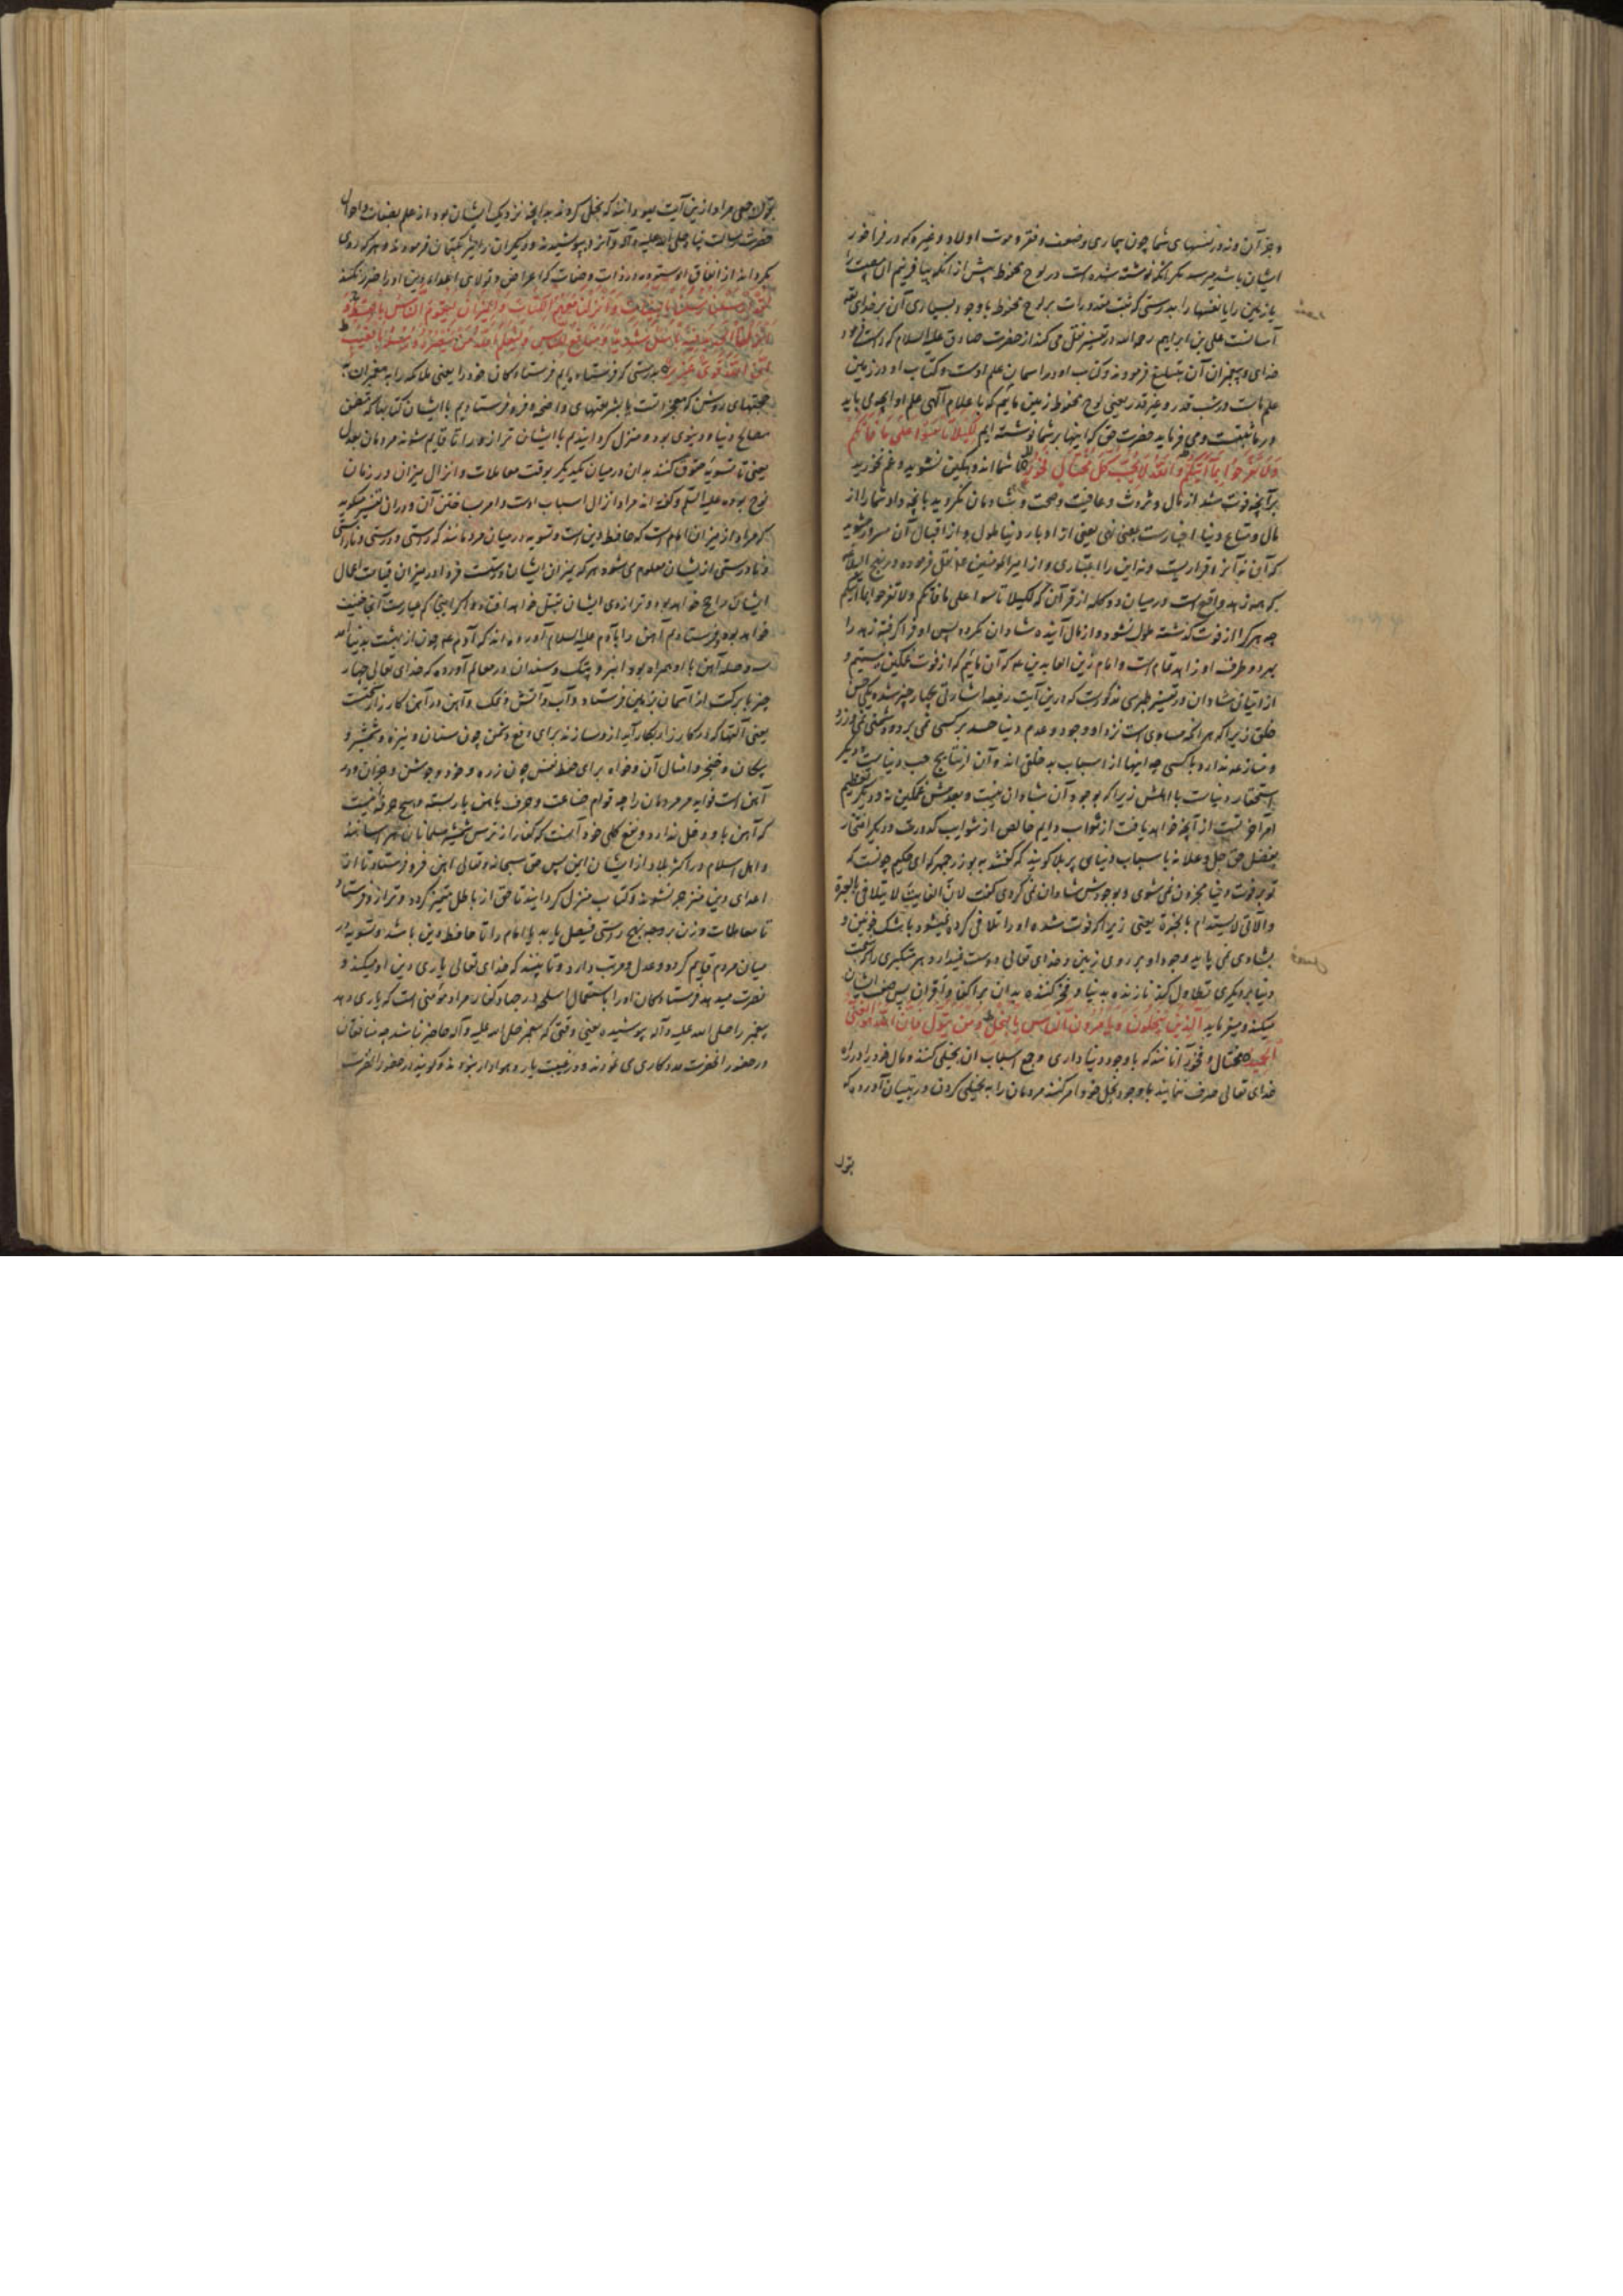 و جز آن و نه در نفسهای شما چون بیماری و ضعف و فقر و موت اولاد و غیره که در فراخور
ایشان باشد میرسد مگر آنکه نوشته شده است در لوح محفوظ پیش از آنکه بیافرینم آن مصیبت را
یا زمین را یا نفسها را بدرستی که ثبت مقدورات بر لوح محفوظ با وجود بسیاری آن بر خدای تعالی
آسانست علی بن ابراهیم رحمه الله در تفسیر نقل می کند از حضرت صادق علیه السلام که
خدای و پیغمبران آن تبلیغ فرموده و کتاب او در اسمان علم اوست و کتاب او در زمین
علم ماست در شب قدر و غیر قدر یعنی لوح محفوظ زمین مائیم که با علام آگهی علم او
و می فرماید حضرت حق که اینها بر شما نوشته ایم لِكَيْلَا تَأْسَوْا عَلَىٰ مَا فَاتَكُمْ
وَلَا تَفْرَحُوا بِمَا آتَاكُمْ وَاللَّهُ لَا يُحِبُّ كُلَّ مُخْتَالٍ فَخُورٍ تا شما اندوهگین نشوید و غم نخورید
بر آنچه فوت شد از مال و ثروت و عافیت و صحت و شادمان نگردید بآنچه داد شما را از
مال و متاع دنیا اخبارست بمعنی نهی یعنی از ادبار دنیا ملول و از اقبال آن مسرور مشوید
که آن نه آنرا قراریست و نه این را اعتباری و از امیر المومنین نقل فرموده و در نهج البلاغه
که همه زهد واقع است در میان دو کلمه از قرآن که لکیلا تاسوا علی ما فاتکم ولا تفرحوا بما آتیکم
چه هر که از فوت گذشته ملول نشود و از مال آینده شادان نگردد پس او فرا گرفته زهد را
بهر دو طرف او زاهد تمام است و امام زین العابدین که آن مائیم که از فوت غمگین نیستیم و
از اتیان شادان و در تفسیر طبرسی مذکورست که درین آیت رفیعه اشارتی بچهار چیز شده یکی حسن
خلق زیرا که هر آنکه مساوی است نزد او وجود و عدم دنیا حسد بر کسی نمی برد و دشمنی نمی ورزد
و منازعه ندارد با کسی چه اینها از اسباب بد خلقی اند و آن از نتایج حب دنیاست و دیگر
استحقار دنیاست با اهلش زیرا که بوجود آن شادان نیست و بعدمش غمگین نه و دیگر تعظیم
آخرتست از آنچه خواهد یافت از ثواب دایم خالص از شوایب کدورت و دیگر افتخار
بفضل حق جل و علا نه باسباب دنیای پر بلا گویند که گفتند به بوزرجمهر که ای حکیم چونست که
تو بر فوت دنیا محزون نمی شوی و بوجودش شادان نمی گردی گفت لان الفایت لا یتلافی بالعبرة
والآتی لا یستدام بالحبرة یعنی زیرا که فوت شده او را تلافی کرده نمیشود باشک خونین و
بشادی نمی پاید وجود او بر روی زمین و خدای تعالی دوست نمیدارد هر متکبری را که
دنیا بر دیگری تطاول کند نازنده بدنیا و فخر کننده بدان بر اکفا و اقران پس صفت ایشان
میکند و میفرماید الَّذِينَ يَبْخَلُونَ وَيَأْمُرُونَ النَّاسَ بِالْبُخْلِ وَمَنْ يَتَوَلَّ فَإِنَّ اللَّهَ هُوَ الْغَنِيُّ
الْحَمِيدُ مختال و فخور آنانند که با وجود دنیا داری و جمع اسباب ان بخیلی کنند و مال خود را در راه
خدای تعالی صرف ننمایند با وجود بخل خود امر کنند مردمان را به بخیلی کردن و در تبیان آورده که
بقول
بقول مراد ازین آیت یهودانند که بخل کردند بدانچه نزدیک ایشان بود از علم بصفات و احوال
حضرت رسالت پناه صلی الله علیه وآله و آنرا بپوشیدند و دیگران را نیز بکتمان فرمودند و هر که روی
بگرداند از انفاق در ذات و صفات که اعراض و تولای اعدا دین او را ضرر نکند
لَقَدْ أَرْسَلْنَا رُسُلَنَا بِالْبَيِّنَاتِ وَأَنْزَلْنَا مَعَهُمُ الْكِتَابَ وَالْمِيزَانَ لِيَقُومَ النَّاسُ بِالْقِسْطِ وَ
أَنْزَلْنَا الْحَدِيدَ فِيهِ بَأْسٌ شَدِيدٌ وَمَنَافِعُ لِلنَّاسِ وَلِيَعْلَمَ اللَّهُ مَنْ يَنْصُرُهُ وَرُسُلَهُ بِالْغَيْبِ
إِنَّ اللَّهَ قَوِيٌّ عَزِيزٌ بدرستی که فرستاده ایم فرستادگان خود را یعنی ملائکه را به پیغمبران
حجتهای روشن که معجزاتست یا بشریعتهای واضحه و فرو فرستادیم با ایشان کتابها که متضمن
مصالح دنیا و دینوی بود و منزل گردانیدیم با ایشان ترازو را تا قایم شوند مردمان بعدل
یعنی تا تسویه حقوق کنند بدان در میان یکدیگر بوقت معاملات و انزال میزان در زمان
نوح بوده علیه السلم و گفته اند مراد از انزال اسباب اوست و امر بساختن آن و در ان تفسیر میگوید
که مراد از میزان امام است که حافظ دین است و تسویه در میان مردمانند که راستی و درستی و ناراستی
و نادرستی از ایشان معلوم می شود هر که بمیزان ایشان درستست فردا در میزان قیامت اعمال
ایشان راجح خواهد بود و ترازوی ایشان ثقیل خواهد افتاد و اگر اینجا کم عیارست آنجا خفیف
خواهد بود و فرستادیم آهن را بآدم علیه السلام آورده اند که آدم چون از بهشت بدنیا آمد
آهن با او همراه بود انبر و پتک و سندان و در معالم آورده که خدای تعالی چهار
چیز با برکت از آسمان بزمین فرستاد و آب و آتش و نمک و آهن و در آهن کار زار سختست
یعنی آلتها که در کارزار بکار آید ازو سازند برای دفع دشمن چون سنان و نیزه و شمشیر و
پیکان و خنجر و امثال آن و خواه برای حفظ نفس چون زره و خود و جوشن و جز ان و در
آهن است فواید مر مردمان را چه قوام صناعت و حرف باهن باز بسته و هیچ حرفه نیست
که آهن با او دخل ندارد و نفع کلی خود آنست که کفار از ترس شمشیر مسلمانان
و اهل اسلام در اکثر بلاد از ایشان ایمن پس حق سبحانه و تعالی اهن فرو فرستاد تا ان
اعدای دین منزجر شوند و کتاب منزل گردانید تا حق از باطل متمیز گردد و ترازو فرستاد
تا معاملات وزن بر وجه نهج راستی فیصل یابد یا امام را تا حافظ دین باشد و تسویه در
میان مردم قیام کرده و عدل و مرتب دارد و تا ببیند که خدای تعالی یاری دین او میکند و
نصرت میدهد فرستادگان او را باستعمال اسلحه در جهاد کفار مراد مؤمنی است که یاری دهد
پیغمبر را صلی الله علیه وآله پوشیده یعنی وقتی که پیغمبر صلی الله علیه وآله حاضر نباشد چه منافقان
در حضور انحضرت مددکاری می نمودند و در غیبت یار و هوادار نبودند و گویند در حضور انحضرت